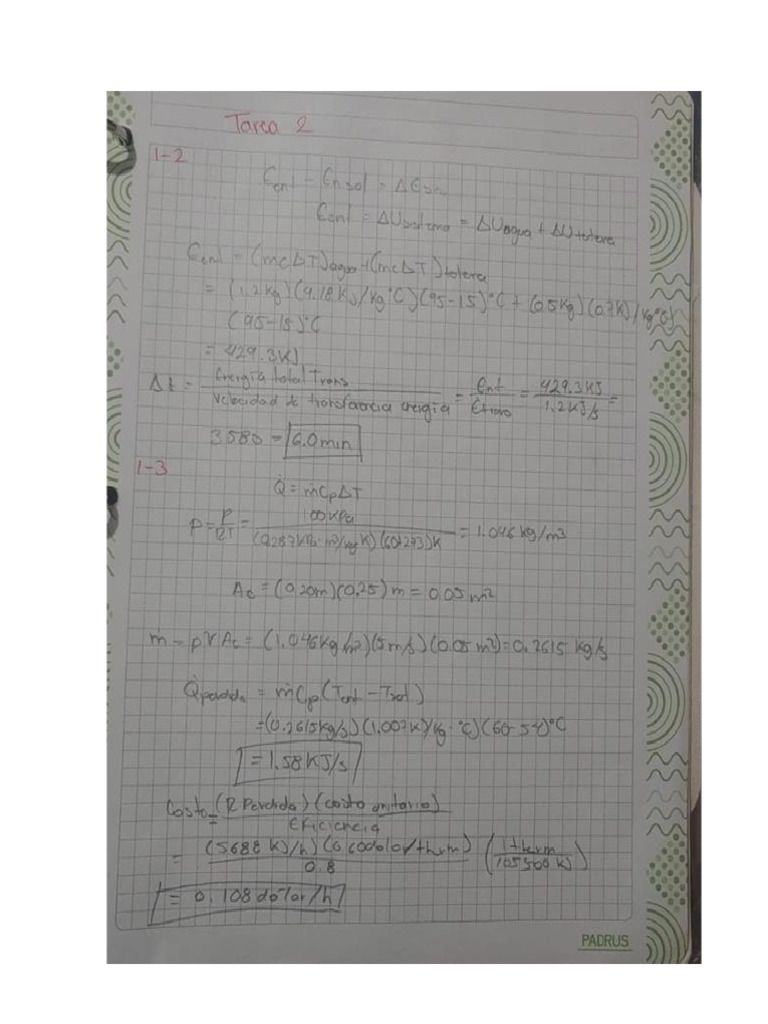 Tarea 2
1-2
Eent - Ensal = ΔEsin
Eent = ΔUsistema = ΔUagua + ΔUtetera
Eent = (mcΔT)agua + (mcΔT)tetera
= (1.2kg)(4.18KJ/kg°C)(95-15)°C + (0.5kg)(0.7KJ/kg°C)
(95-15)°C
= 429.3KJ
Δt = Energía total Trans / Velocidad de transferencia energía = Ent / Etrans = 429.3KJ / 1.2KJ/s =
3580 = 6.0min
1-3
Q̇ = ṁCpΔT
ρ = P/RT = 100kPa / (0.287kPa·m³/kg K)(60+273)K = 1.046kg/m³
Ac = (0.20m)(0.25)m = 0.05m²
ṁ = ρVAc = (1.046kg/m³)(5m/s)(0.05m²) = 0.2615 kg/s
Q̇perdida = ṁCp(Tent - Tsal)
= (0.2615kg/s)(1.007KJ/kg·°C)(60-54)°C
= 1.58KJ/s
Costo = (Q Perdida)(costo unitario) / Eficiencia
= (5688 KJ/h)(0.60dolar/therm) / 0.8 (1therm / 105500KJ)
= 0.108dolar/h
PADRUS